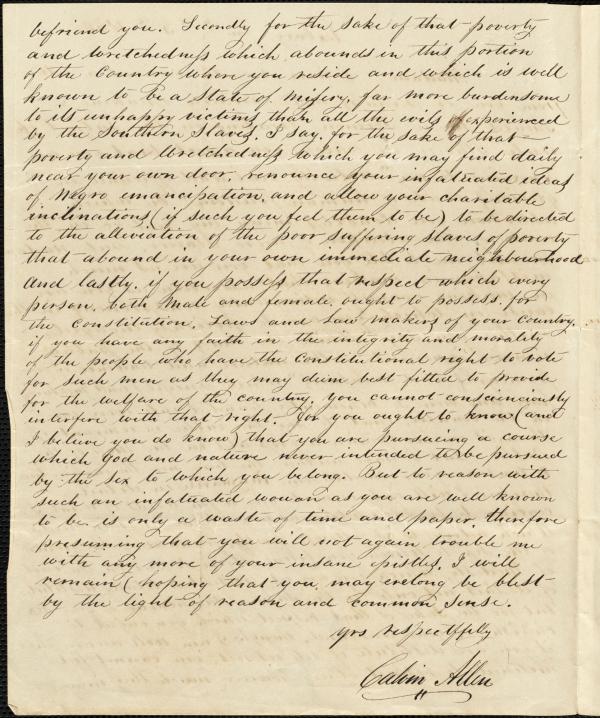 befriend you. Secondly for the sake of that poverty
and wretchedness which abounds in this portion
of the Country where you reside and which is well
known to be a State of misery, far more burdensome
to its unhappy victims than all the evils experienced
by the Southern Slaves, I say, for the sake of that
poverty and wretchedness which you may find daily
near your own door, renounce your infatuated ideas
of Negro emancipation, and allow your charitable
inclinations (if such you feel them to be) to be directed
to the alleviation of the poor suffering slaves of poverty
that abound in your own immediate neighbourhood
and lastly, if you possess that respect which every
person, both male and female, ought to possess, for
the constitution, Laws and Law makers of your Country,
if you have any faith in the integrity and morality
of the people who have the Constitutional right to vote
for such men as they may deim best fitted to provide
for the welfare of the country, you cannot consciencously
interfire with that right. For you ought to know (and
I belive you do know) that you are pursueing a course
which God and nature never intended to be pursued
by the sex to which you belong. But to reason with
such an infatuated woman as you are well known
to be, is only a waste of time and paper, therefore
presuming that you will not again trouble me
with any more of your insane epistles, I will
remain (hoping that you may erelong be blest
by the light of reason and common sense.
yrs respectffully
Calvin Allen